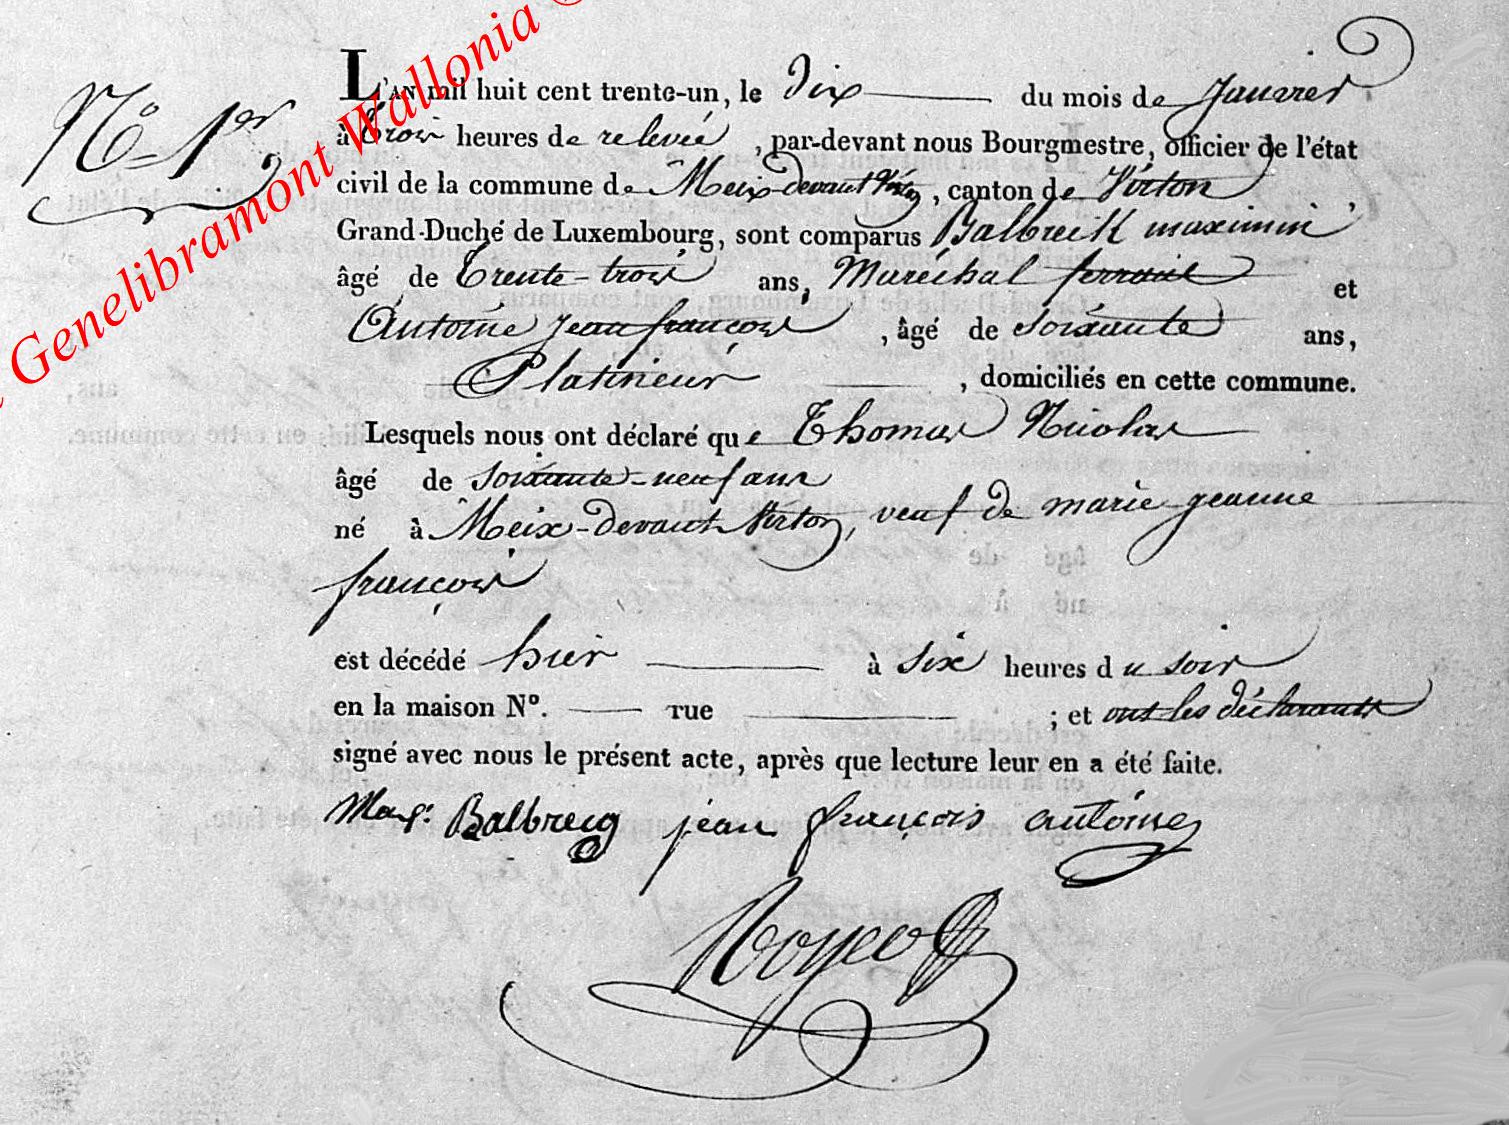 Genelibramont Wallonia ©
N° 1er,
L'AN mil huit cent trente-un, le Dix du mois de Janvier
à Trois heures de relevée, par-devant nous Bourgmestre, officier de l'état
civil de la commune de Meix-devant Virton, canton de Virton,
Grand-Duché de Luxembourg, sont comparus Balbreik maximin,
âgé de Trente-trois ans, Maréchal ferrant et
Antoine Jean françois, âgé de soixante ans,
Platineur, domiciliés en cette commune.
Lesquels nous ont déclaré que Thomas Nicolas
âgé de soixante-neuf ans
né à Meix-devant Virton, veuf de marie jeanne
françois
est décédé hier à six heures du soir
en la maison N°. rue ; et ont les déclarants
signé avec nous le présent acte, après que lecture leur en a été faite.
Max: Balbrecq jean françois antoine